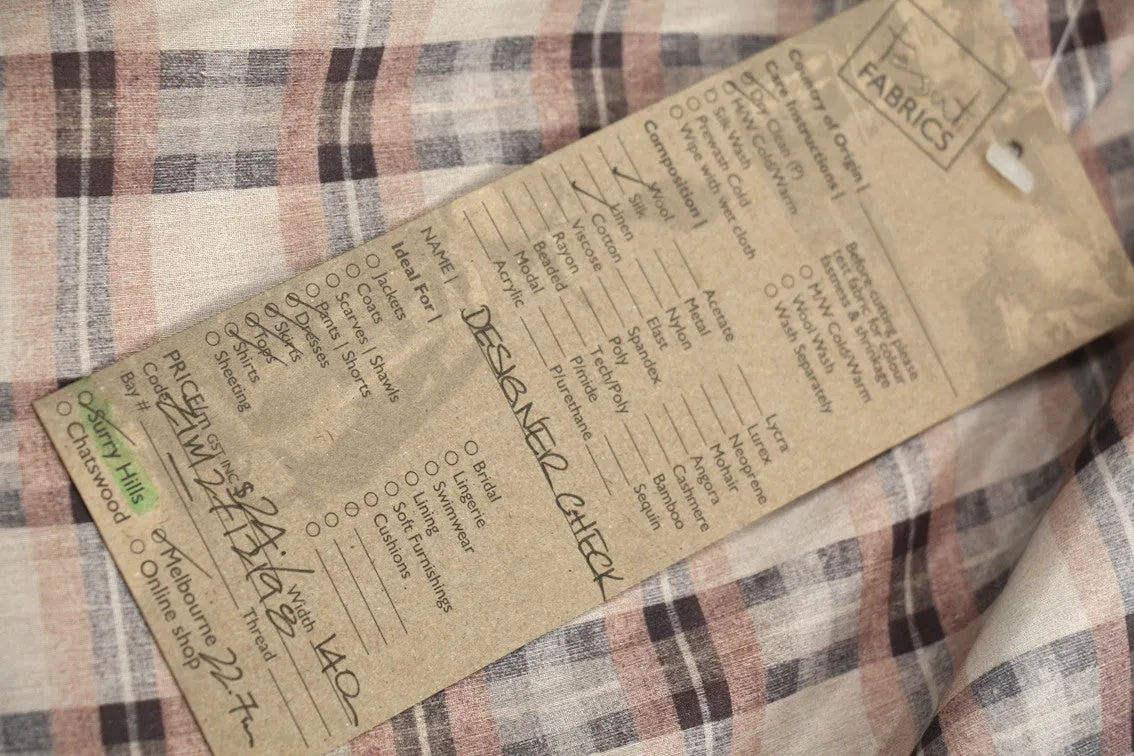 Tessuti
FABRICS
Country of Origin |
Care Instructions |
Dry Clean (P)
H/W Cold/Warm
Silk Wash
Prewash Cold
Wipe with wet cloth
Before cutting please
test fabric for colour
fastness & shrinkage
M/W Cold/Warm
Wool Wash
Wash Separately
Composition |
Wool
Silk
Linen
Cotton
Viscose
Rayon
Beaded
Modal
Acrylic
Acetate
Metal
Nylon
Elast
Spandex
Poly
Tech/Poly
P/mide
P/urethane
Lycra
Lurex
Neoprene
Mohair
Angora
Cashmere
Bamboo
Sequin
NAME | DESIGNER CHECK
Ideal For |
Jackets
Coats
Scarves | Shawls
Pants | Shorts
Dresses
Skirts
Tops
Shirts
Sheeting
Bridal
Lingerie
Swimwear
Lining
Soft Furnishings
Cushions
PRICE/m GST INC $24.- Width 140
Code
Bay # Thread
Surry Hills Melbourne 22.7m
Chatswood Online shop